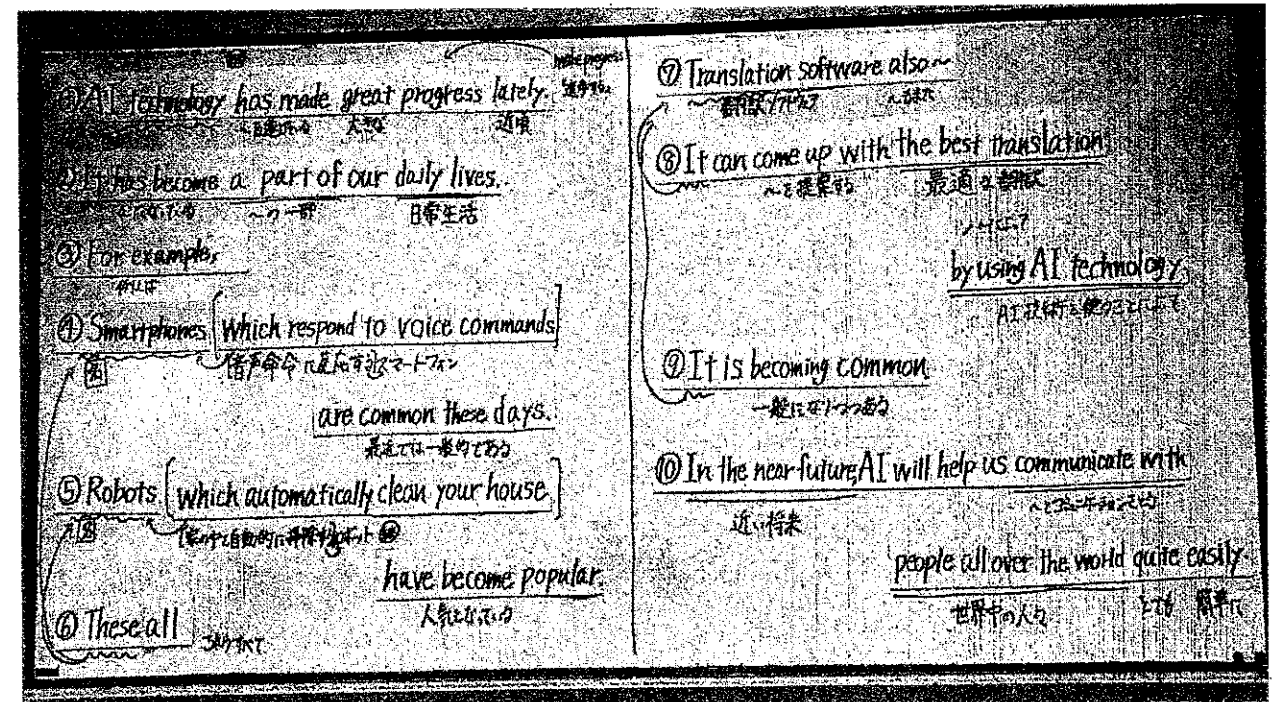 make progress
① AI technology has made great progress lately.
大きな 近頃
② It has become a part of our daily lives.
〜の一部 日常生活
③ For example,
例えば
④ Smartphones [which respond to voice commands]
音声命令に反応するスマートフォン
are common these days.
最近では一般的である
⑤ Robots [which automatically clean your house]
自動的に
have become popular.
人気となっている
⑥ These all
これらすべて
⑦ Translation software also~
翻訳ソフトウェア 〜もまた
⑧ It can come up with the best translation
〜を提案する 最適な翻訳
by using AI technology.
AI技術を使うことによって
⑨ It is becoming common.
一般になりつつある
⑩ In the near future, AI will help us communicate with
近い将来
people all over the world quite easily.
世界中の人々 とても 簡単に